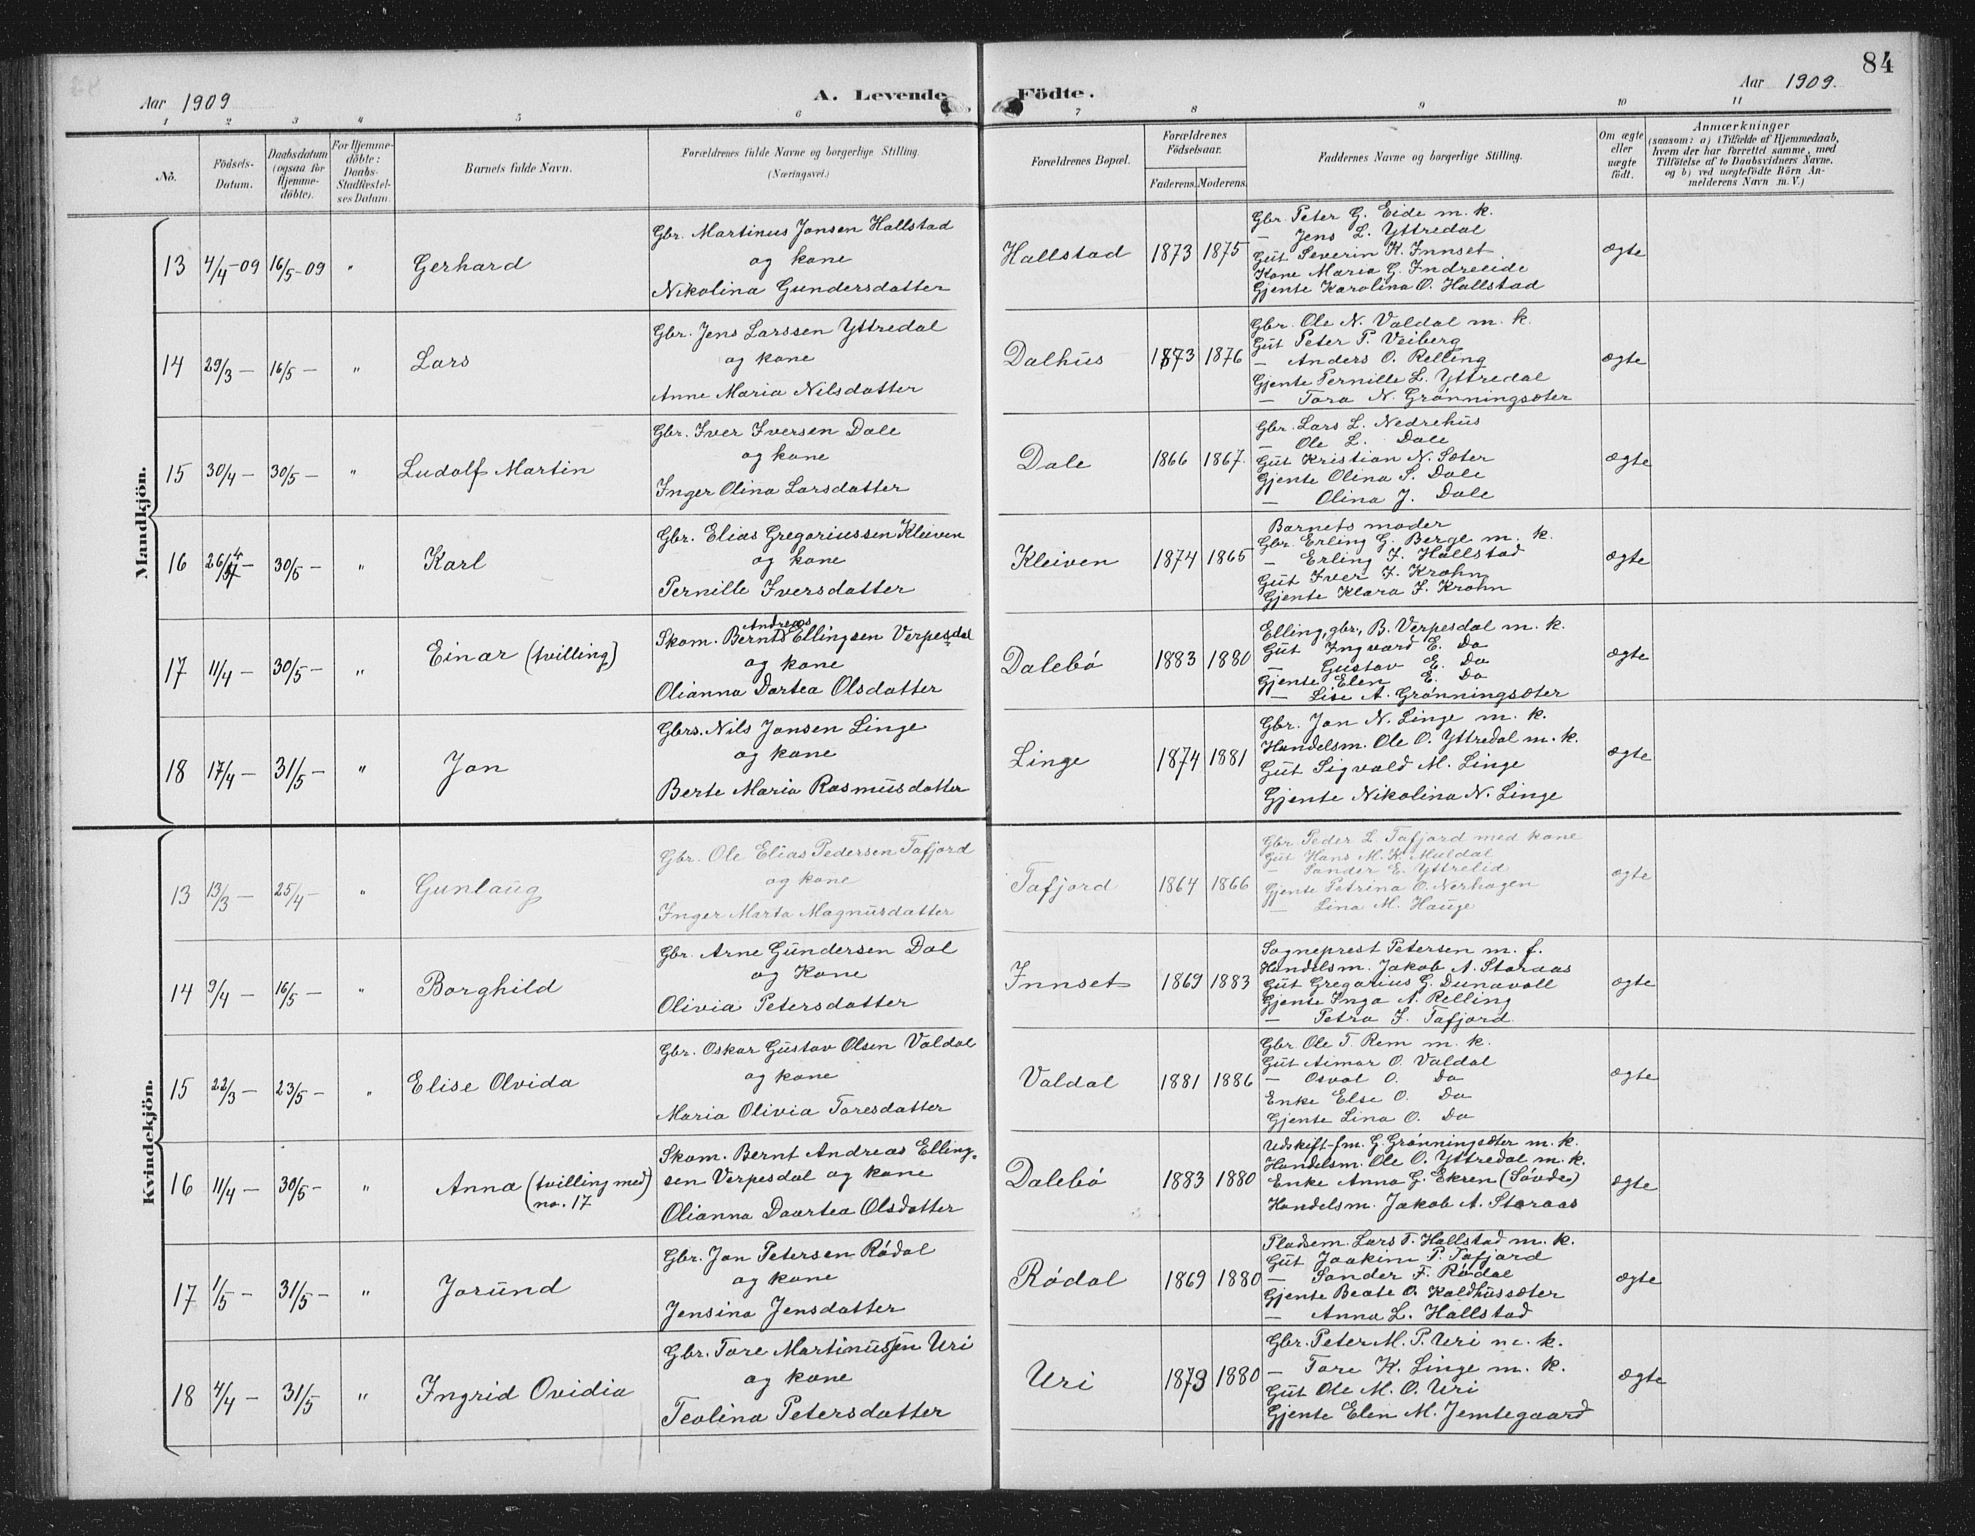 84
Aar 1909
A. Levende Födte.
Aar 1909.
1 2 3 4 5 6 7 8 9 10 11
No.
Födsels-
Datum.
Daabsdatum
(ogsaa for
Hjemme-
döbte).
For Hjemme-
döbte:
Daabs-
Stadfæstel-
ses Datum.
Barnets fulde Navn.
Forældrenes fulde Navne og borgerlige Stilling.
(Næringsvei.)
Forældrenes Bopæl.
Forældrenes
Födselsaar.
Faderens. Moderens.
Faddernes Navne og borgerlige Stilling.
Om ægte
eller
uægte
födt.
Anmærkninger
(saasom: a) i Tilfælde af Hjemmedaab,
hvem der har forrettet samme, med
Tilföielse af to Daabsvidners Navne.
og b) ved uægtefödte Börn An-
melderens Navn m. V.)
Mandkjön.
13 4/4-09 16/5-09 " Gerhard
Gbr. Martinus Jonsen Hallstad
og kone
Nikolina Gundersdatter
Hallstad 1873 1875
Gbr. Peter G. Eide m. k.
— Jens L. Yttredal
Gut Severin K. Innset
Kone Maria G. Indreeide
Gjente Karolina O. Hallstad
ægte
14 29/3 — 16/5 — " Lars
Gbr. Jens Larssen Yttredal
og kone
Anne Maria Nilsdatter
Dalhus 1873 1876
Gbr. Ole N. Valdal m. k.
Gut Peter P. Veiberg
— Anders O. Relling
Gjente Pernille L. Yttredal
— Tora N. Grønningsæter
ægte
15 30/4 — 30/5 — " Ludolf Martin
Gbr. Iver Iversen Dale
og kone
Inger Olina Larsdatter
Dale 1866 1867.
Gbr. Lars L. Nedrehus
— Ole L. Dale
Gut Kristian N. Sæter
Gjente Olina S. Dale
— Olina J. Dale
ægte
16 26/4 — 30/5 — " Karl
Gbr. Elias Gregoriussen Kleiven
og kone
Pernille Iversdatter
Kleiven 1874 1865
Barnets moder
Gbr. Erling G. Berge m. k.
— Erling I. Hallstad
Gut Iver I. Krohn
Gjente Klara I. Krohn
ægte
17 11/4 — 30/5 — " Einar (tvilling)
Andreas
Skom. Bernt Ellingsen Verpesdal
og kone
Olianna Dortea Olsdatter
Dalebø 1883 1880
Elling, gbr., B. Verpesdal m. k.
Gut Ingvard E. Do
— Gustav E. Do
Gjente Elen E. Do
— Lise A. Grønningsæter
ægte
18 17/4 — 31/5 — " Jon
Gbrs. Nils Jonsen Linge
og kone
Berte Maria Rasmusdatter
Linge 1874 1881
Gbr. Jon N. Linge m. k.
Handelsm. Ole O. Yttredal m. k.
Gut Sigvald M. Linge
Gjente Nikolina N. Linge
ægte
Kvindekjön.
13 13/3 — 25/4 — " Gunlaug
Gbr. Ole Elias Pedersen Tafjord
og kone
Inger Marta Magnusdatter
Tafjord 1864 1866
Gbr. Peder L. Tafjord med kone
Gut Hans M. K. Muldal
— Sander E. Yttrelid
Gjente Petrina O. Nerhagen
— Lina M. Hauge
ægte
14 9/4 — 16/5 — " Borghild
Gbr. Arne Gundersen Dal
og Kone
Olivia Petersdatter
Innset 1869 1883
Sogneprest Petersen m. f.
Handelsm. Jakob A. Storaas
Gut Gregorius G. Dunavoll
Gjente Inga A. Relling
— Petra I. Tafjord.
ægte
15 22/3 — 23/5 — " Elise Olvida
Gbr. Oskar Gustav Olsen Valdal
og kone
Maria Olivia Toresdatter
Valdal 1881 1886
Gbr Ole T. Rem m. k.
Gut Aimar O. Valdal
— Osval O. Do
Enke Else O. Do
Gjente Lina O. Do
ægte
16 11/4 — 30/5 — " Anna (tvilling med
no. 17)
Skom. Bernt Andreas Elling-
sen Verpesdal og kone
Olianna Daartea Olsdatter
Dalebø 1883 1880
Udskift.fm. G. Grønningsæter m. k.
Handelsm. Ole O. Yttredal m. k.
Enke Anna G. Ekren (Søvde)
Handelsm. Jakob A. Storaas
ægte
17 1/5 — 31/5 — " Jorund
Gbr. Jon Petersen Rødal
og kone
Jensina Jensdatter
Rødal 1869 1880
Pladsem. Lars T. Hallstad m. k.
Gut Joakim P. Tafjord
— Sander F. Rødal
Gjente Beate O. Kaldhussæter
— Anna L. Hallstad
ægte
18 4/4 — 31/5 " Ingrid Ovidia
Gbr. Tore Martinussen Uri
og kone
Teolina Petersdatter
Uri 1873 1880
Gbr. Peter M. P. Uri m. k.
— Tore K. Linge m. k.
Gut Ole M. O. Uri
Gjente Elen M. Jemtegaard
ægte